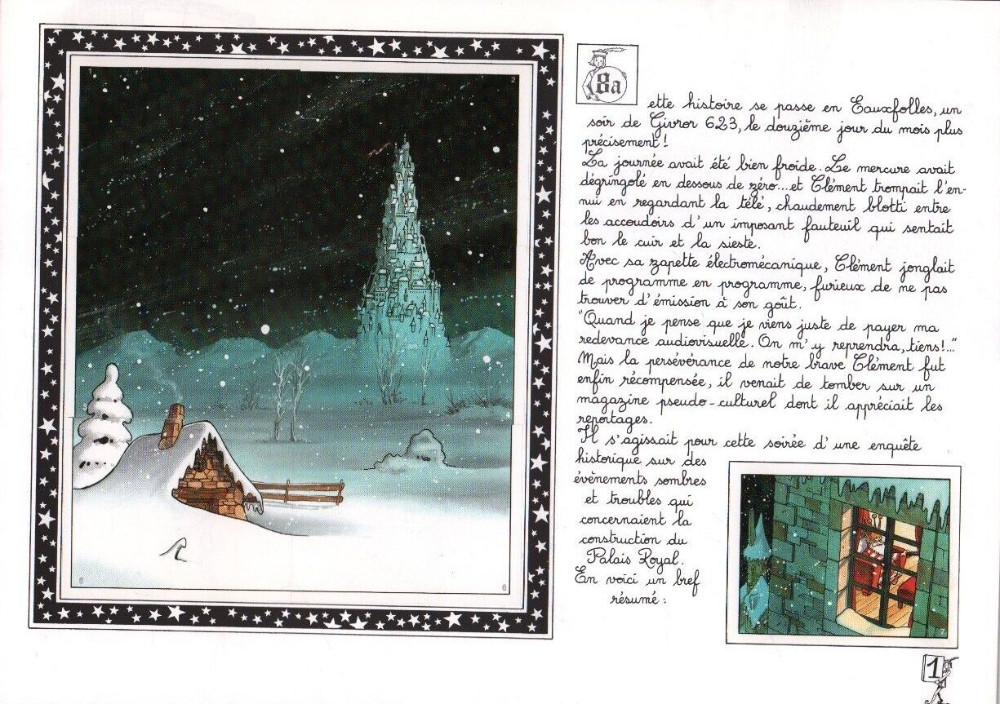 8a
ette histoire se passe en Eauxfolles, un
soir de Givror 623, le douzième jour du mois plus
précisément !
La journée avait été bien froide. Le mercure avait
dégringolé en dessous de zéro...et Clément trompait l'en-
nui en regardant la télé, chaudement blotti entre
les accoudoirs d'un imposant fauteuil qui sentait
bon le cuir et la sieste.
Avec sa zapette électromécanique, Clément jonglait
de programme en programme, furieux de ne pas
trouver d'émission à son goût.
"Quand je pense que je viens juste de payer ma
redevance audiovisuelle. On m'y reprendra, tiens!..."
Mais la persévérance de notre brave Clément fut
enfin récompensée, il venait de tomber sur un
magazine pseudo-culturel dont il appréciait les
reportages.
Il s'agissait pour cette soirée d'une enquête
historique sur des
évènements sombres
et troubles qui
concernaient la
construction du
Palais Royal.
En voici un bref
résumé :
2
6
7
1